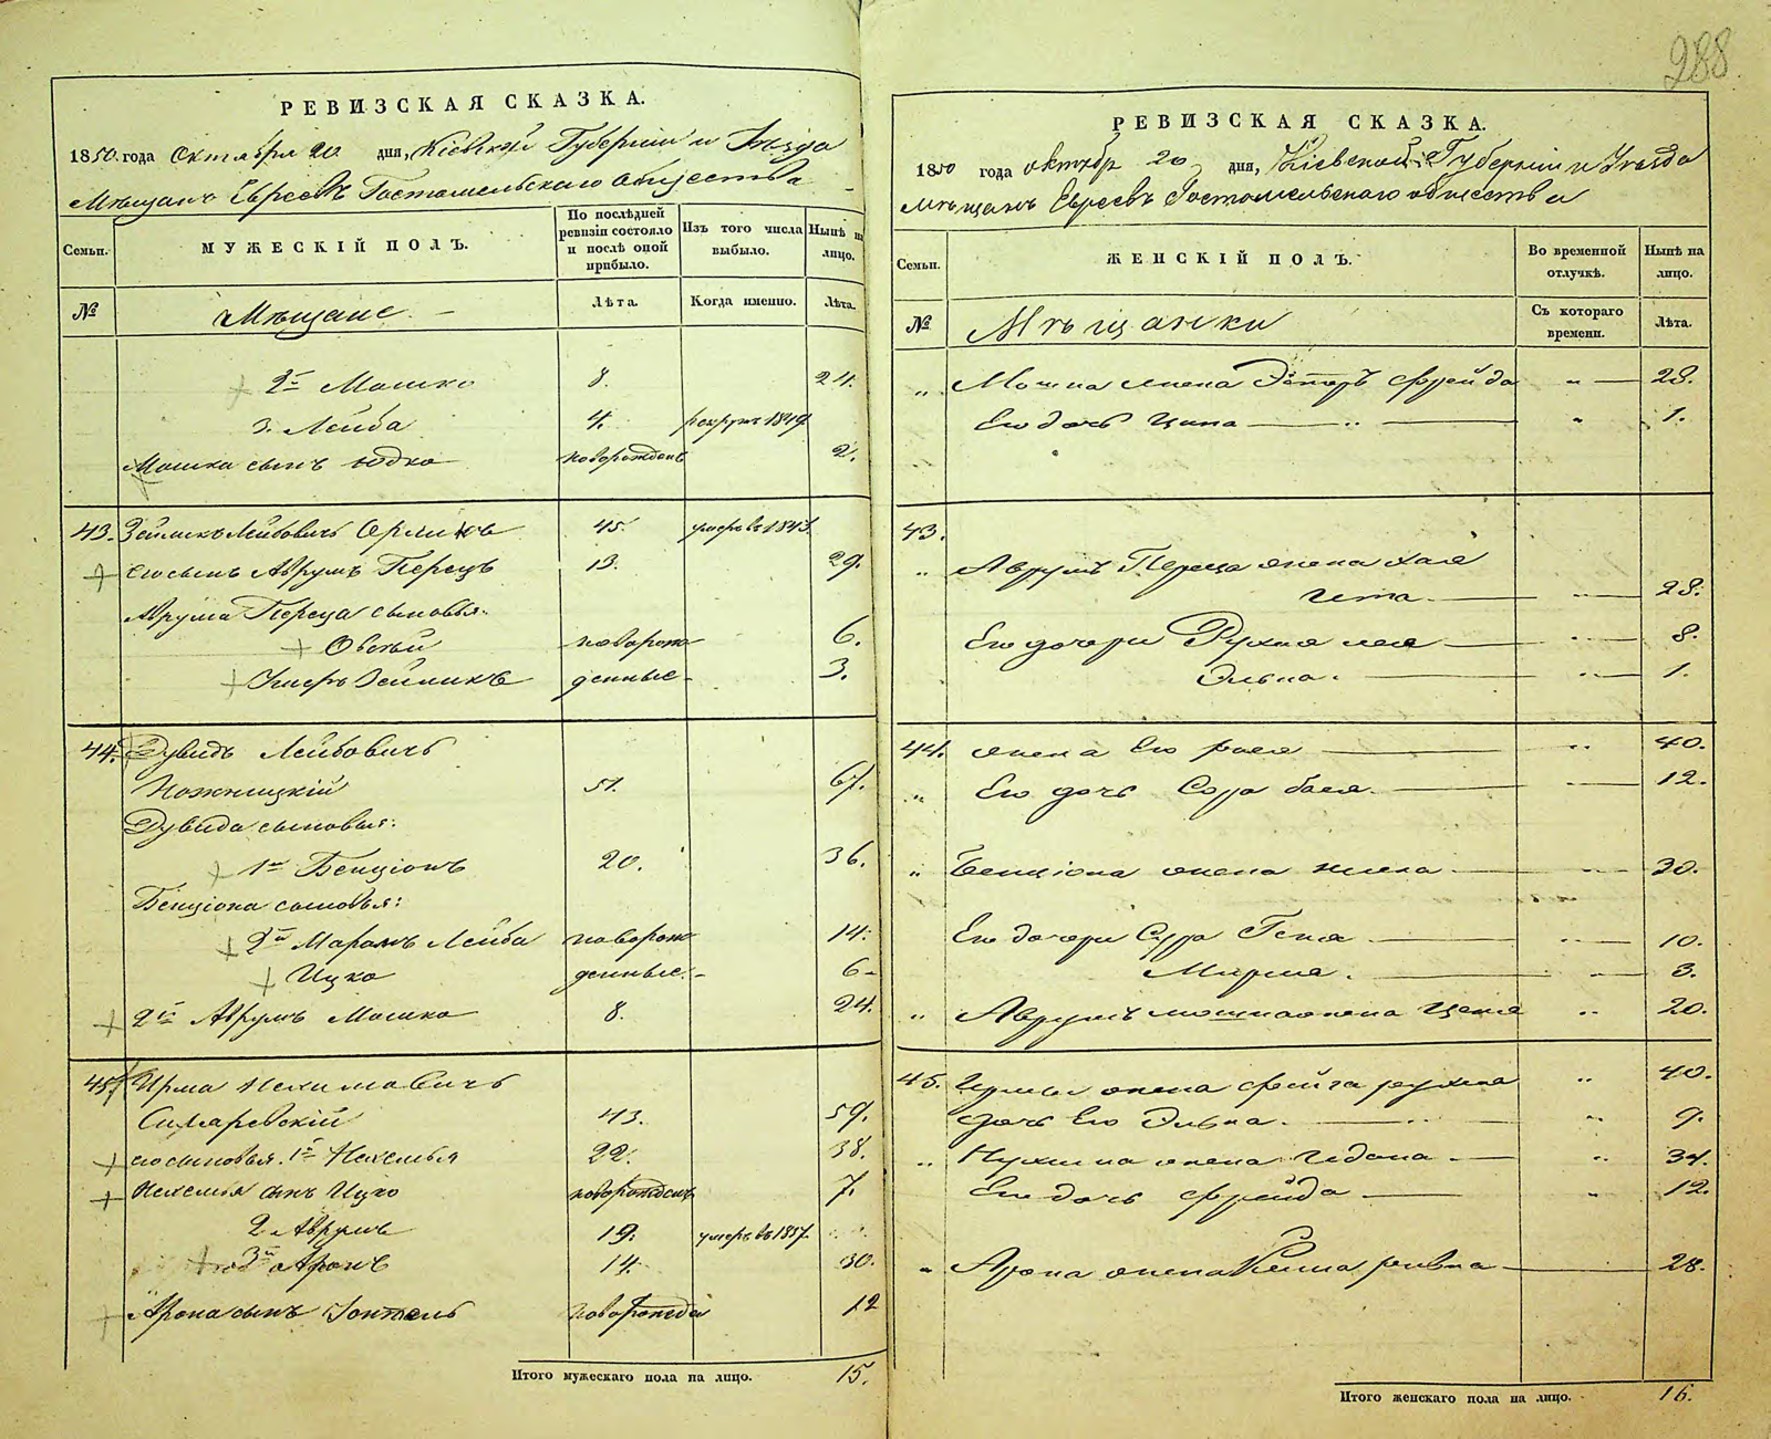 288
РЕВИЗСКАЯ СКАЗКА.
1850 года Октября 20 дня, Кіевской Губерніи и Уѣзда
Мѣщанъ Евреевъ Гостомельскаго общества
Семьи. МУЖЕСКІЙ ПОЛЪ. По послѣдней ревизіи состояло и послѣ оной прибыло. Изъ того числа выбыло. Нынѣ на лицо.
№ Мѣщане Лѣта. Когда именно. Лѣта.
2й Мошко 8. 24.
3. Лейба 4. рекрутъ 1849
Мошка сынъ Юдко новорожденъ 2.
43. Зейликъ Лейбовичъ 45. умеръ въ 1843.
его сынъ Аврумъ Перецъ 13. 29.
Аврума Переца сыновья:
Овсей новорож 6.
Умеръ Зейликъ денные 3.
44. Дувидъ Лейбовичъ
Ножницкій 51. 67.
Дувида сыновья:
1й Бенціонъ 20. 36.
Бенціона сыновья:
Лейба новорож 14.
Ицко денные 6
2й Аврумъ Мошко 8. 24.
45. Лейбовичъ
43. 59.
его сыновья. 1й Нехемья 22. 38.
Нехемья сынъ Ицко новорожденъ 7.
2 Аврумъ 19. умеръ въ 1837.
3й Аронъ 14. 30.
Арона сынъ новорожде 12
Итого мужескаго пола на лицо. 15.
РЕВИЗСКАЯ СКАЗКА.
1850 года октября 20 дня, Кіевской Губерніи и Уѣзда
Мѣщанъ Евреевъ Гостомельскаго общества
Семьи. ЖЕНСКІЙ ПОЛЪ. Во временной отлучкѣ. Нынѣ на лицо.
№ Мѣщанки Съ котораго времени. Лѣта.
„ Мошка жена Эстеръ Фрейда „ — 28.
Его дочь Ципа „ 1.
43.
„ Аврумъ Переца жена Хая
Ита 28.
Его дочери Рухля Лея 8.
Элька 1.
44. жена его Рася 40.
„ Его дочь Сора Бася 12.
„ Бенціона жена 30.
Его дочери Сура Геня 10.
Мирля 3.
„ Аврумъ Мошка жена 20.
45. жена Фейга Рухля „ 40.
дочь его Элька 9.
„ жена 34.
Его дочь Фрейда 12.
„ Арона жена Ривка 28.
Итого женскаго пола на лицо. 16.